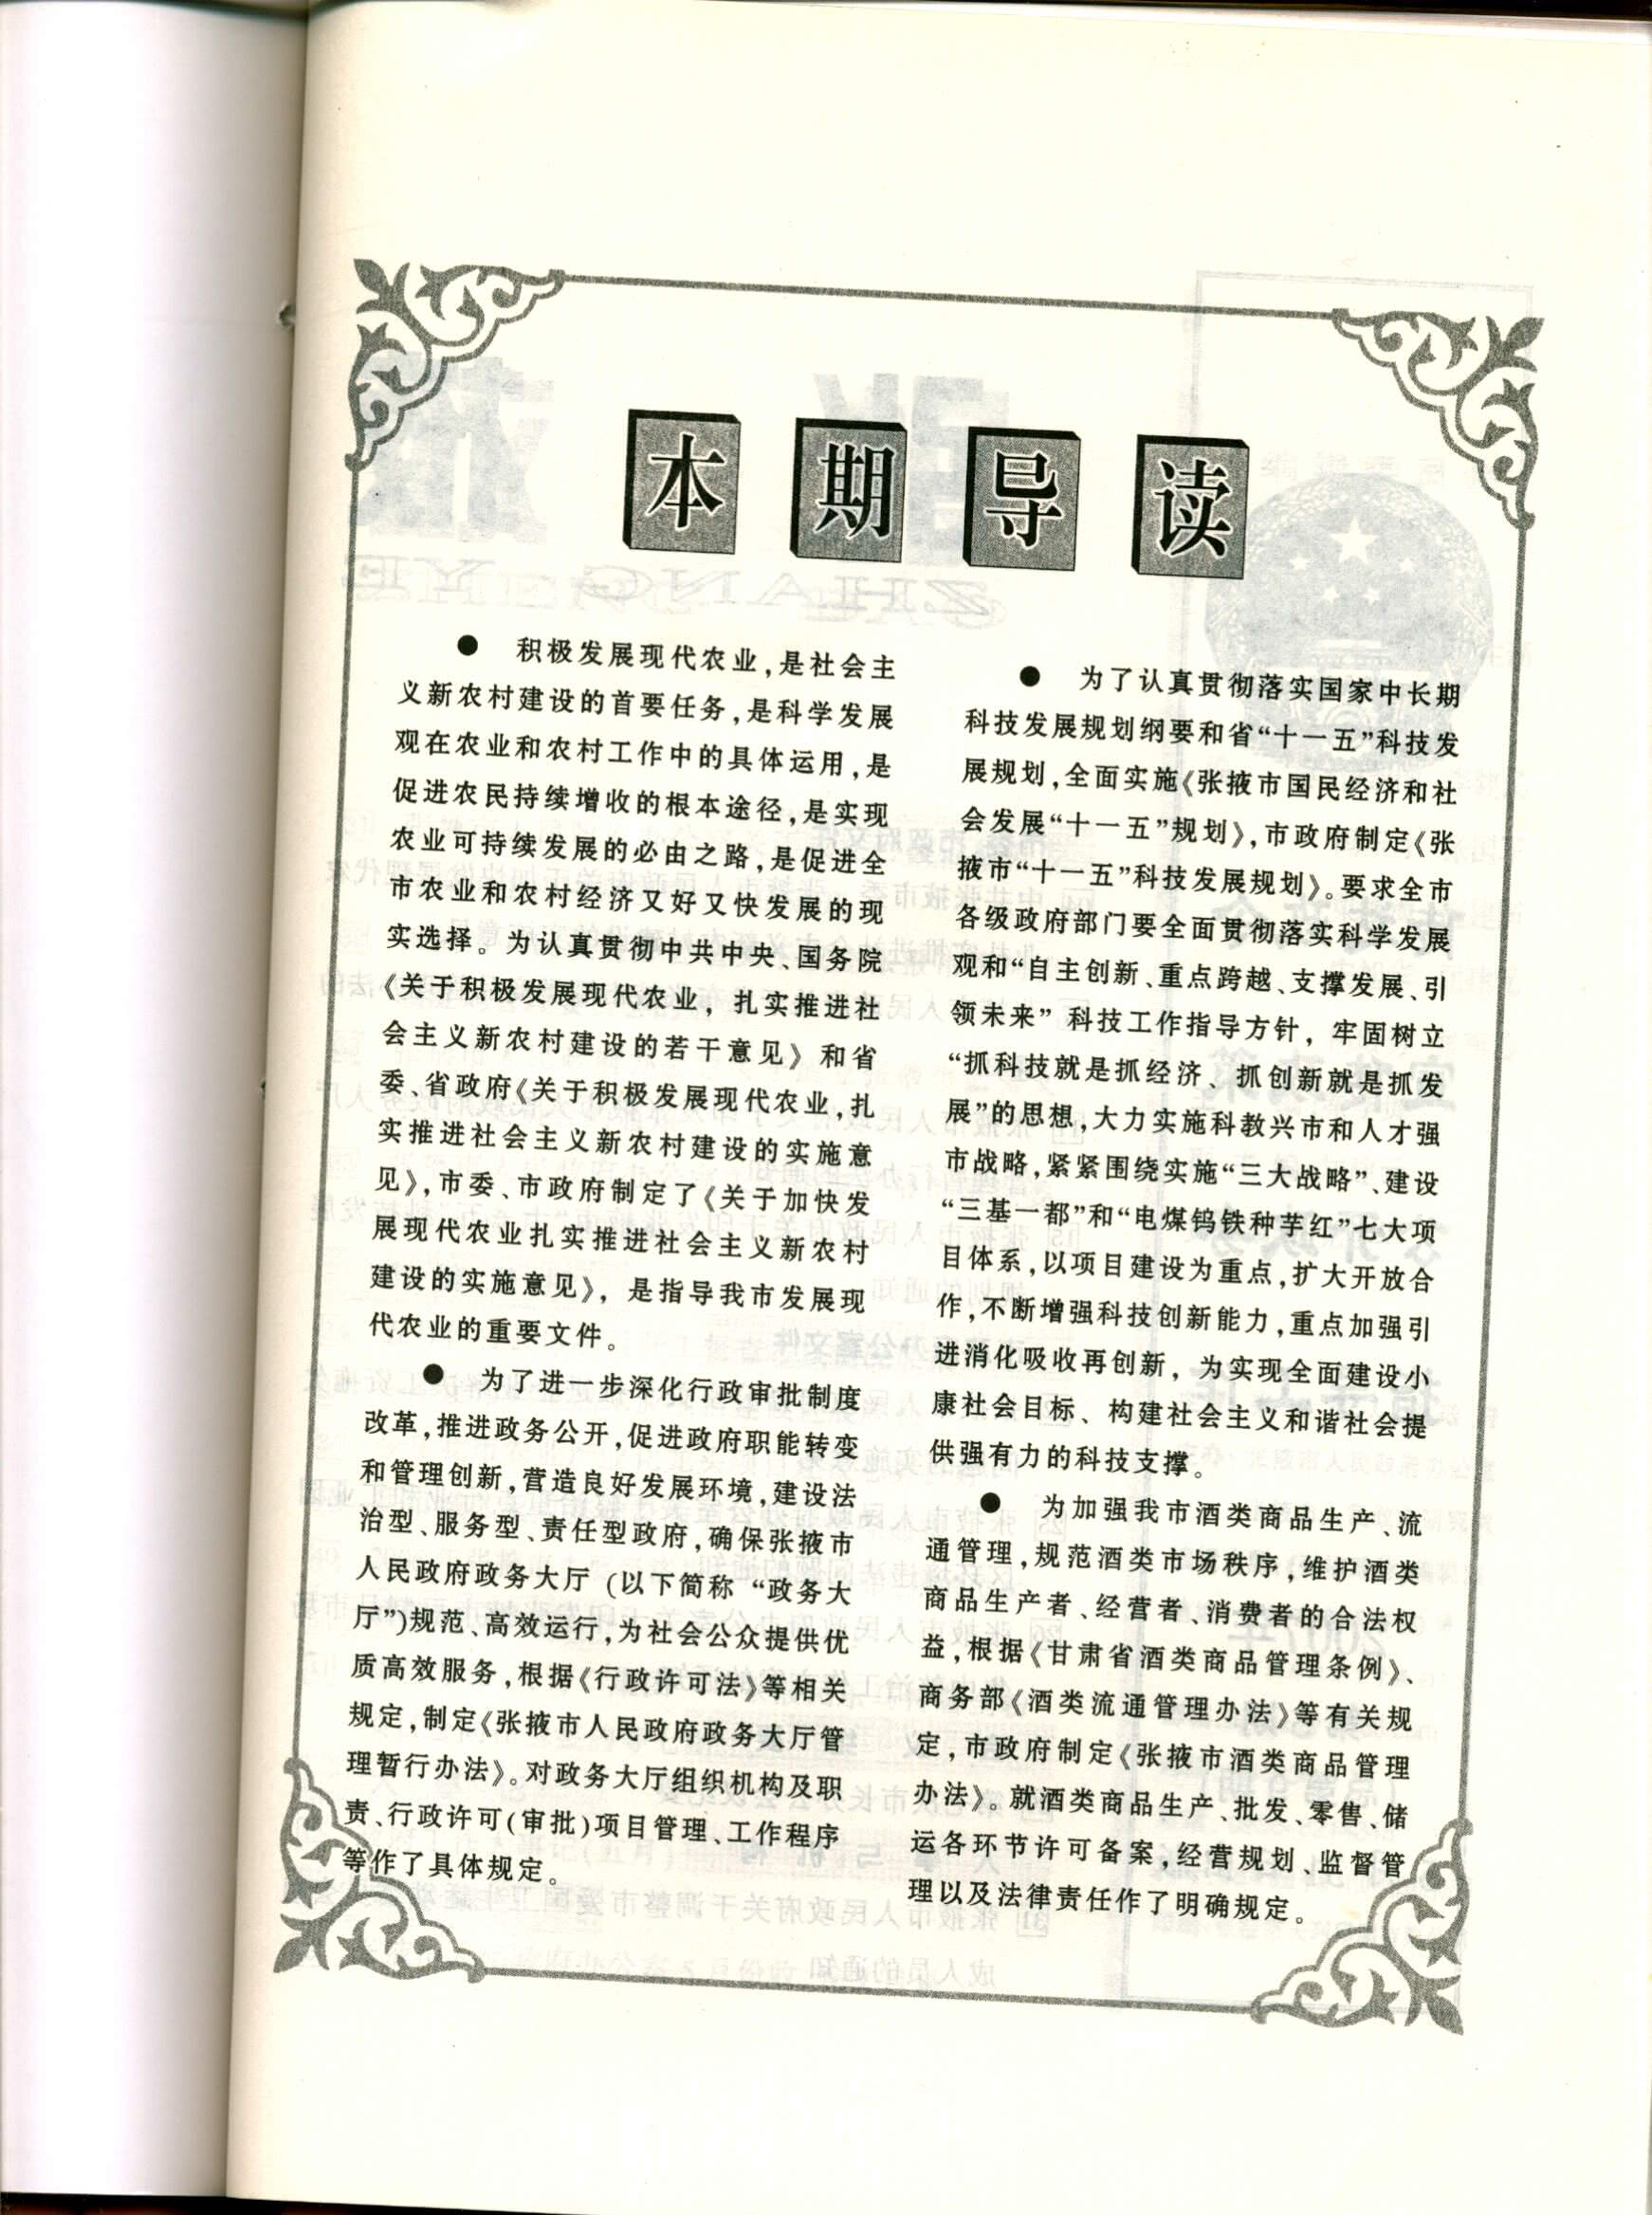 本期导读
● 积极发展现代农业,是社会主
义新农村建设的首要任务,是科学发展
观在农业和农村工作中的具体运用,是
促进农民持续增收的根本途径,是实现
农业可持续发展的必由之路,是促进全
市农业和农村经济又好又快发展的现
实选择。为认真贯彻中共中央、国务院
《关于积极发展现代农业,扎实推进社
会主义新农村建设的若干意见》和省
委、省政府《关于积极发展现代农业,扎
实推进社会主义新农村建设的实施意
见》,市委、市政府制定了《关于加快发
展现代农业扎实推进社会主义新农村
建设的实施意见》,是指导我市发展现
代农业的重要文件。
● 为了进一步深化行政审批制度
改革,推进政务公开,促进政府职能转变
和管理创新,营造良好发展环境,建设法
治型、服务型、责任型政府,确保张掖市
人民政府政务大厅(以下简称“政务大
厅”)规范、高效运行,为社会公众提供优
质高效服务,根据《行政许可法》等相关
规定,制定《张掖市人民政府政务大厅管
理暂行办法》。对政务大厅组织机构及职
责、行政许可(审批)项目管理、工作程序
等作了具体规定。
● 为了认真贯彻落实国家中长期
科技发展规划纲要和省“十一五”科技发
展规划,全面实施《张掖市国民经济和社
会发展“十一五”规划》,市政府制定《张
掖市“十一五”科技发展规划》。要求全市
各级政府部门要全面贯彻落实科学发展
观和“自主创新、重点跨越、支撑发展、引
领未来”科技工作指导方针,牢固树立
“抓科技就是抓经济、抓创新就是抓发
展”的思想,大力实施科教兴市和人才强
市战略,紧紧围绕实施“三大战略”、建设
“三基一都”和“电煤钨铁种芋红”七大项
目体系,以项目建设为重点,扩大开放合
作,不断增强科技创新能力,重点加强引
进消化吸收再创新,为实现全面建设小
康社会目标、构建社会主义和谐社会提
供强有力的科技支撑。
● 为加强我市酒类商品生产、流
通管理,规范酒类市场秩序,维护酒类
商品生产者、经营者、消费者的合法权
益,根据《甘肃省酒类商品管理条例》、
商务部《酒类流通管理办法》等有关规
定,市政府制定《张掖市酒类商品管理
办法》。就酒类商品生产、批发、零售、储
运各环节许可备案,经营规划、监督管
理以及法律责任作了明确规定。